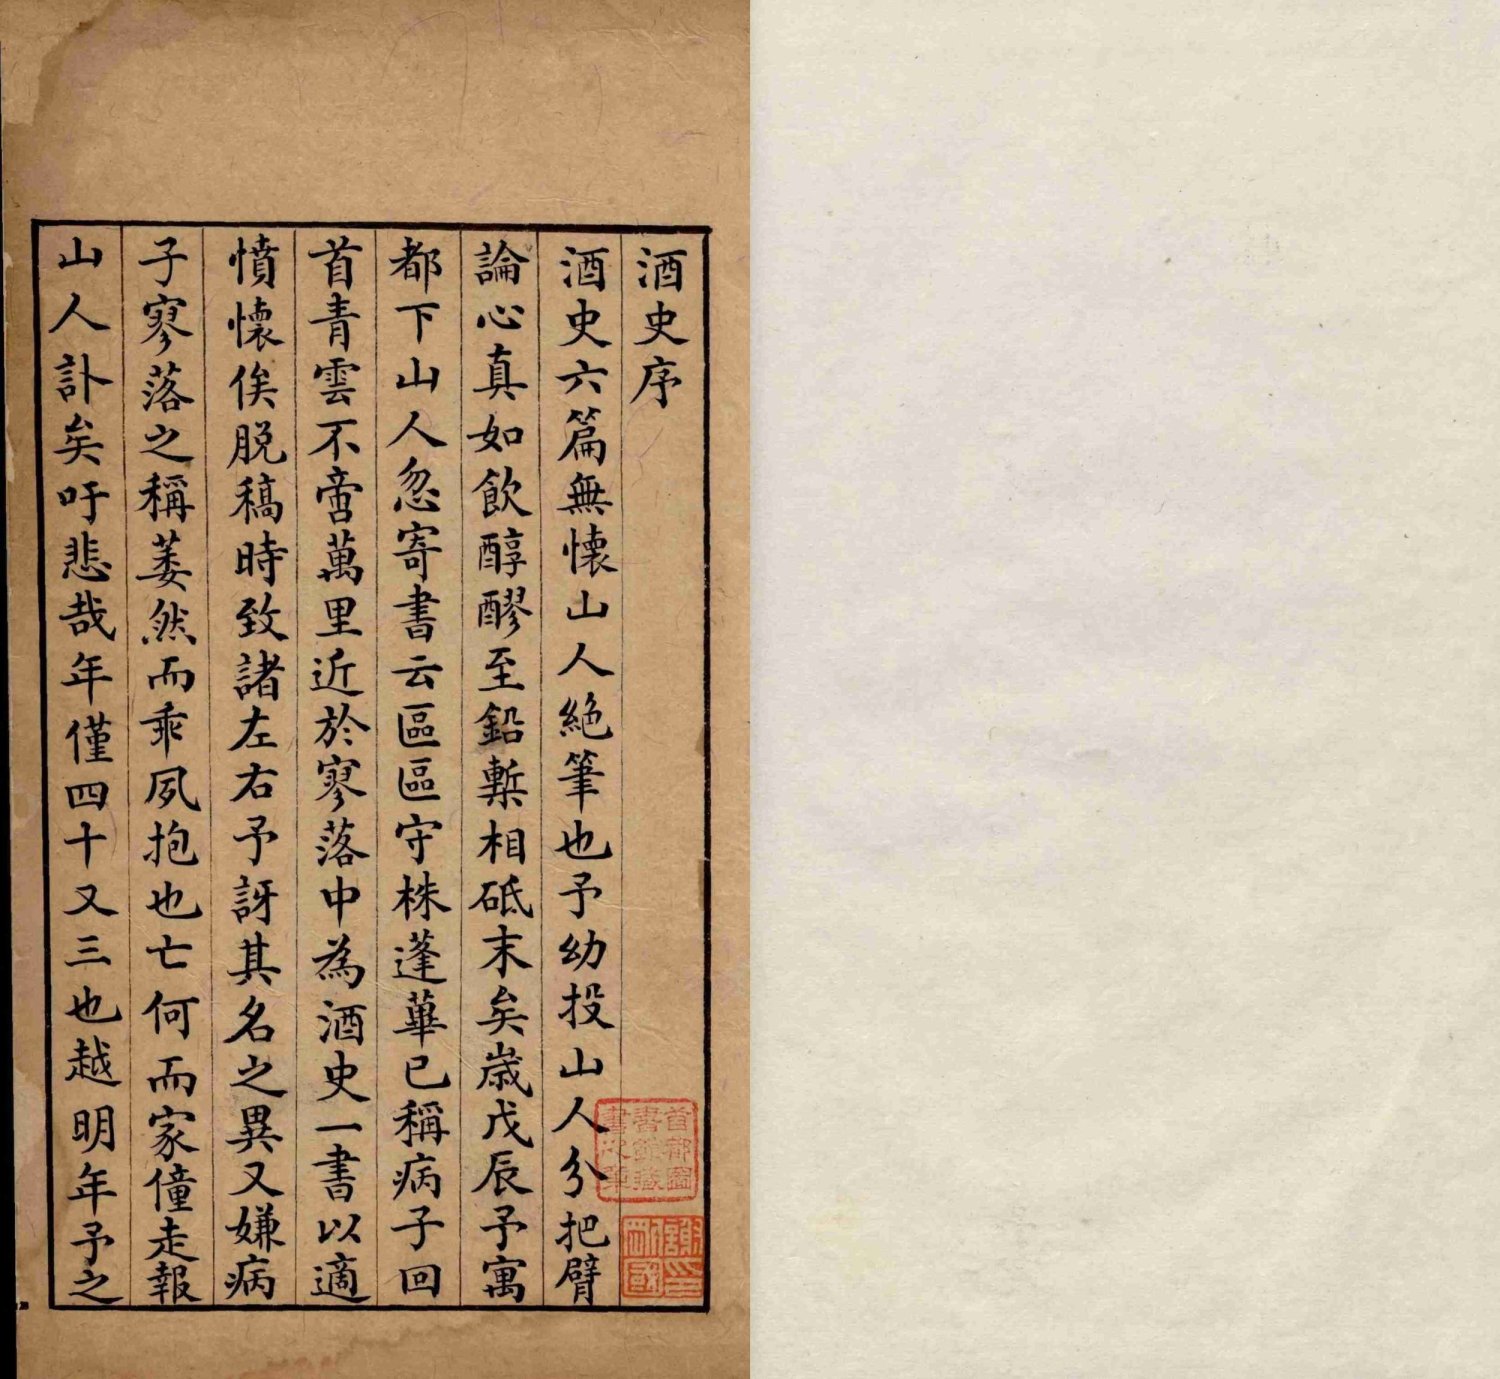 酒史序
酒史六篇無懷山人絶筆也予幼投山人分把臂
論心真如飲醇醪至鉛槧相砥末矣歲戊辰予寓
都下山人忽寄書云區區守株蓬蓽已稱病子回
首青雲不啻萬里近於寥落中為酒史一書以適
憤懷俟脱稿時致諸左右予訝其名之異又嫌病
子寥落之稱萎然而乖夙抱也亡何而家僮走報
山人訃矣吁悲哉年僅四十又三也越明年予之
首都圖
書館藏
書之章